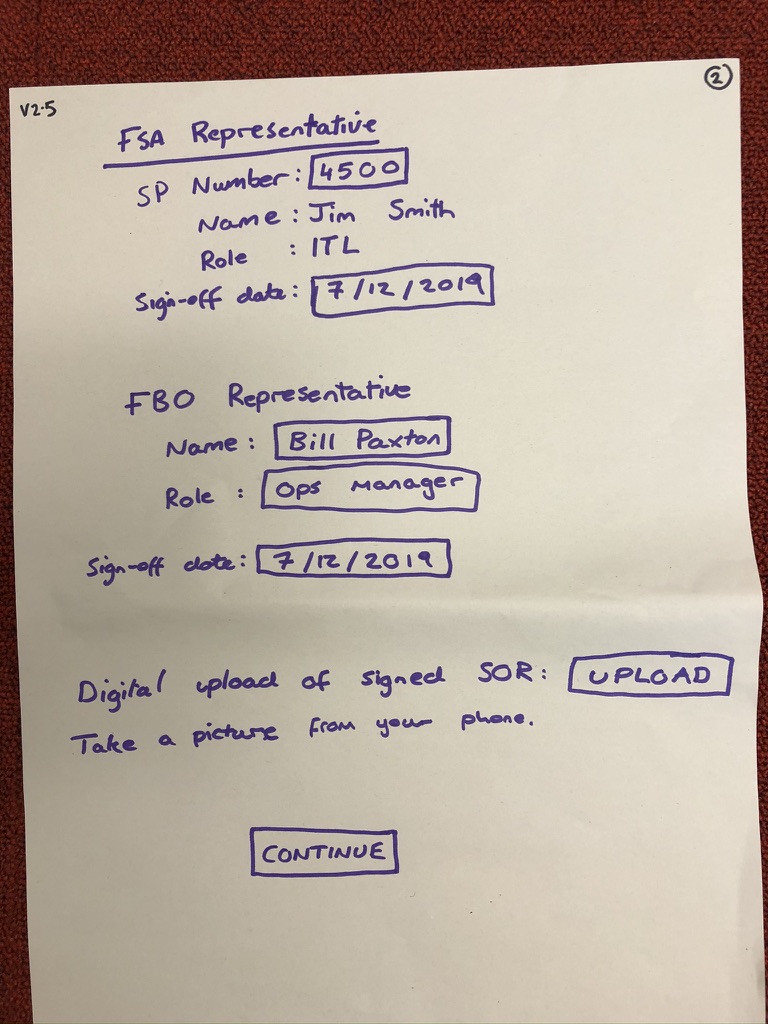 V2.5
2
FSA Representative
SP Number: 4500
Name: Jim Smith
Role : ITL
Sign-off date: 7/12/2019
FBO Representative
Name: Bill Paxton
Role : Ops Manager
Sign-off date: 7/12/2019
Digital upload of signed SOR: UPLOAD
Take a picture from your phone.
CONTINUE